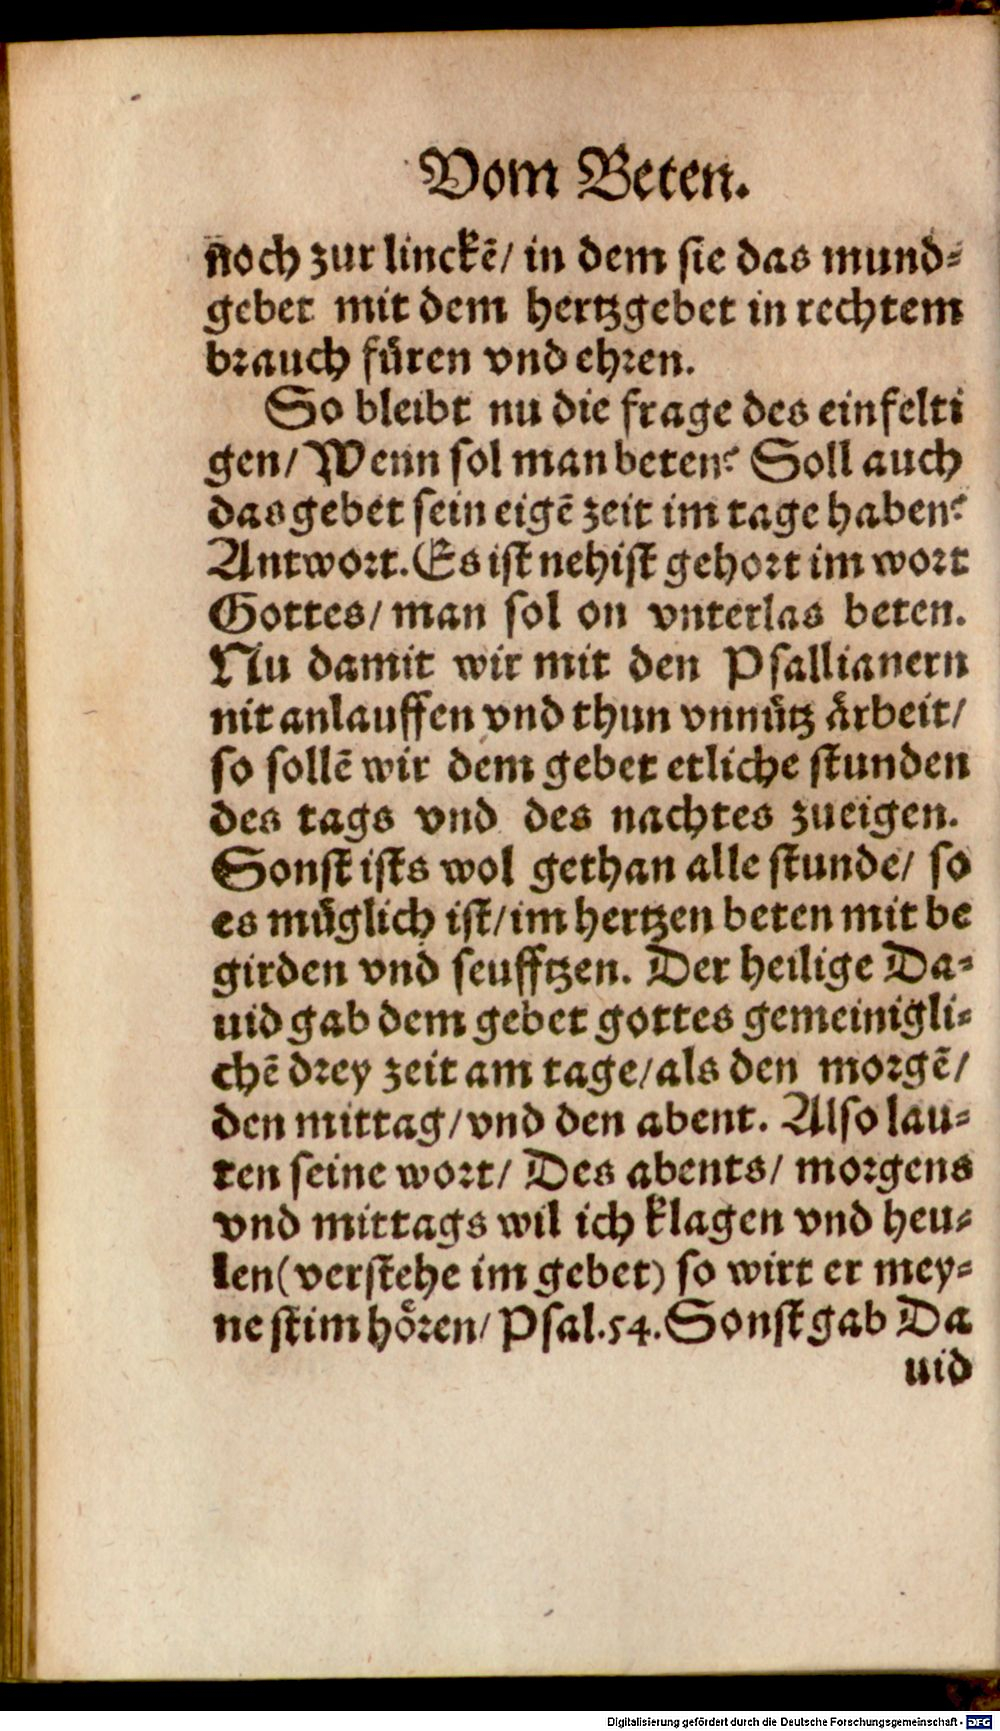 Vom Beten.
noch zur linckē/ in dem sie das mund⸗
gebet mit dem hertzgebet in rechtem
brauch füren vnd ehren.
So bleibt nu die frage des einfelti
gen/ Wenn sol man beten? Soll auch
das gebet sein eigē zeit im tage haben?
Antwort. Es ist nehist gehort im wort
Gottes/ man sol on vnterlas beten.
Nu damit wir mit den Psallianern
nit anlauffen vnd thun vnnütz ärbeit/
so sollē wir dem gebet etliche stunden
des tags vnd des nachtes zueigen.
Sonst ists wol gethan alle stunde/ so
es müglich ist/ im hertzen beten mit be
girden vnd seufftzen. Der heilige Da⸗
uid gab dem gebet gottes gemeinigli⸗
chē drey zeit am tage/ als den morgē/
den mittag/ vnd den abent. Also lau⸗
ten seine wort/ Des abents/ morgens
vnd mittags wil ich klagen vnd heu⸗
len (verstehe im gebet) so wirt er mey⸗
ne stim hören/ Psal. 54. Sonst gab Da
uid
Digitalisierung gefördert durch die Deutsche Forschungsgemeinschaft - DFG